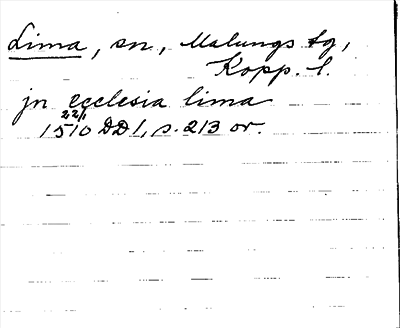 Lima, sn., Malungs tg,
Kopp. l.
jn ecclesia lima
22/1
1510 DD 1, s. 213 or.